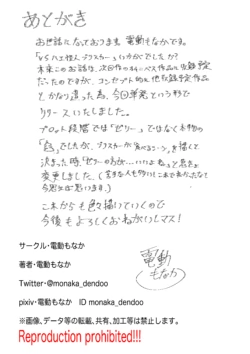 あとがき
お世話になっております 電動もなかです。
「VSハエ怪人 ブラスカー」いかがでしたか?
本来このお話は、次回作の オムニバス作品に収録予定
だったのですが、コンセプト的に他収録予定作品
とかなり違った為、今回単発という形で
リリースいたしました。
プロット段階では「ゼリー」ではなく本物の
「」でしたが、ブラスカーが食べるシーンを描いて
決まった時、「ゼリーの方が…いいよね」と思って
変更しました。(苦手な人も多いしこれで良かったなと
今思えば思います。)
これからも色々描いていくので
今後もよろしくおねがいしマス!
電動
もなか
サークル・電動もなか
著者・電動もなか
Twitter・@monaka_dendoo
pixiv・電動もなか ID monaka_dendoo
※画像、データ等の転載、共有、加工等は禁止します。
Reproduction prohibited!!!